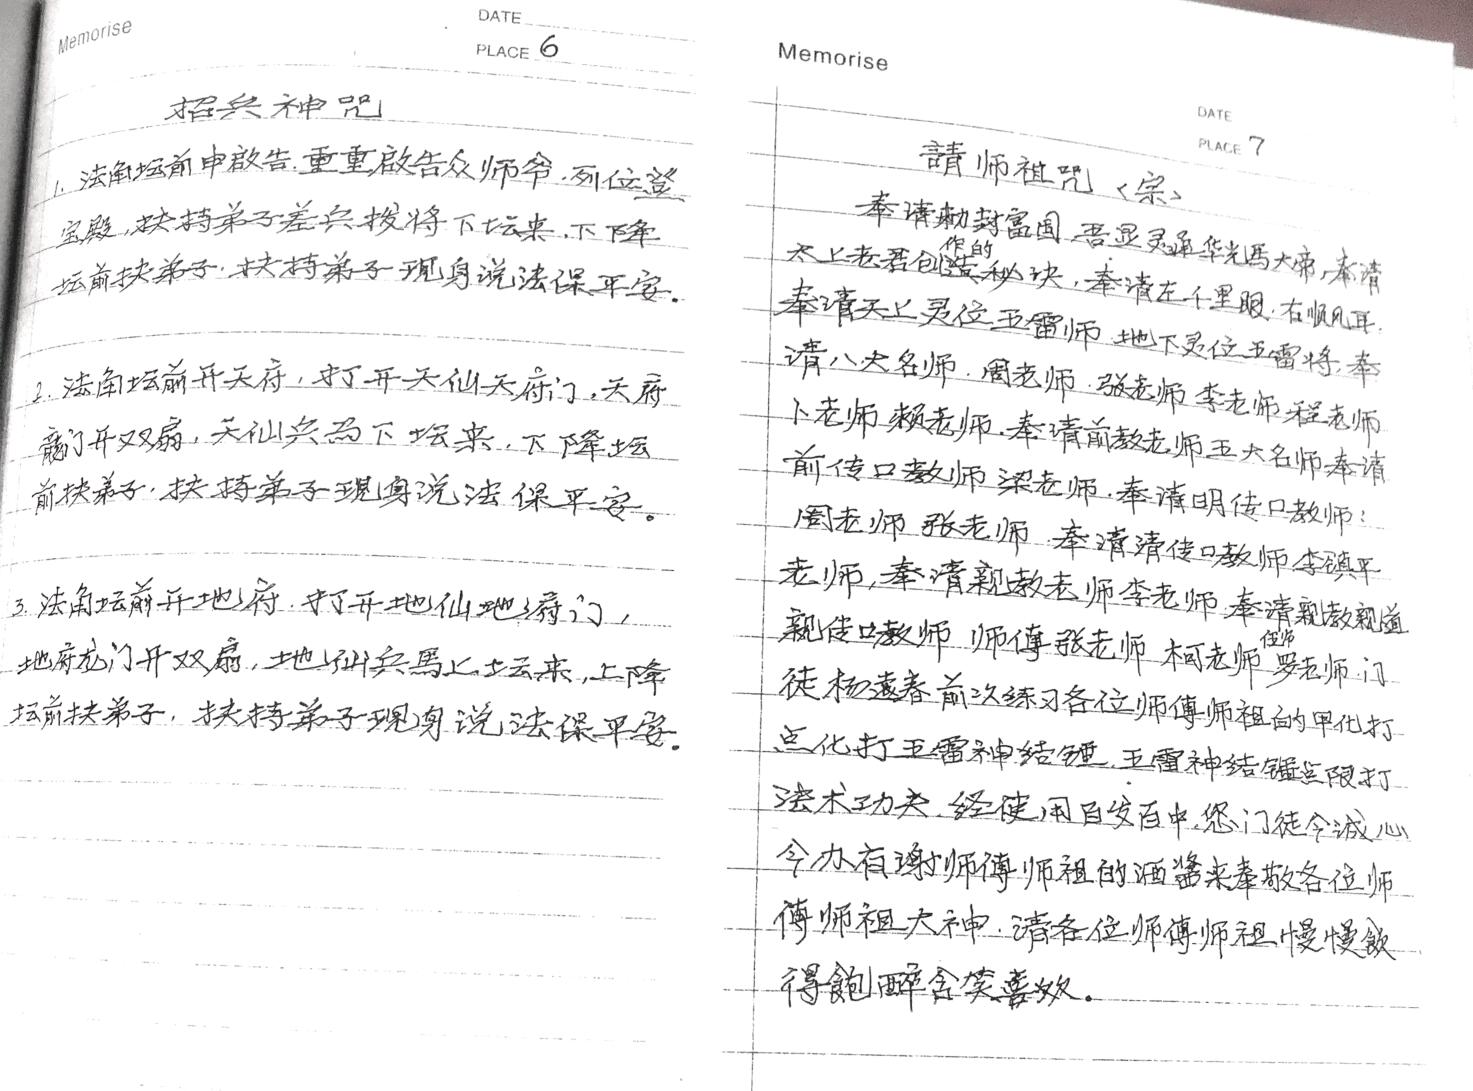 Memorise
DATE
PLACE 6
招兵神咒
1. 法角坛前申啟告.重重啟告众师爷.列位登
宝殿,扶持弟子差兵拨将下坛来.下下降
坛前扶弟子.扶持弟子现身说法保平安.
2. 法角坛前开天府,打开天仙天府门,天府
龍门开双扇,天仙兵马下坛来,下降坛
前扶弟子.扶持弟子现身说法保平安。
3. 法角坛前开地府.打开地仙地府门,
地府龙门开双扇,地仙兵馬上坛来,上降
坛前扶弟子,扶持弟子现身说法保平安。
Memorise
DATE
PLACE 7
請师祖咒〈宗〉
奉请勅封富国 吾显灵通华光馬大帝,奉请
太上老君创造作的秘诀,奉请左千里眼.右顺风耳.
奉请天上灵位五雷师.地下灵位五雷将.奉
请八大名师.周老师.张老师 李老师 程老师
卜老师 赖老师.奉请前教老师五大名师.奉请
前传口教师 梁老师.奉请明传口教师:
周老师 张老师.奉请清传口教师李镇平
老师,奉请親教老师李老师 奉请親教親道
親传口教师 师傅张老师 柯老师 罗老师.门
徒杨遠春前次练习各位师傅师祖的甲化打
点化打五雷神结锤,五雷神结锤点限打
法术功夫.经使用百发百中.您门徒今诚心
今办有謝师傅师祖的酒醬来奉敬各位师
傅师祖大神.请各位师傅师祖慢慢飲
得飽醉含笑喜欢.